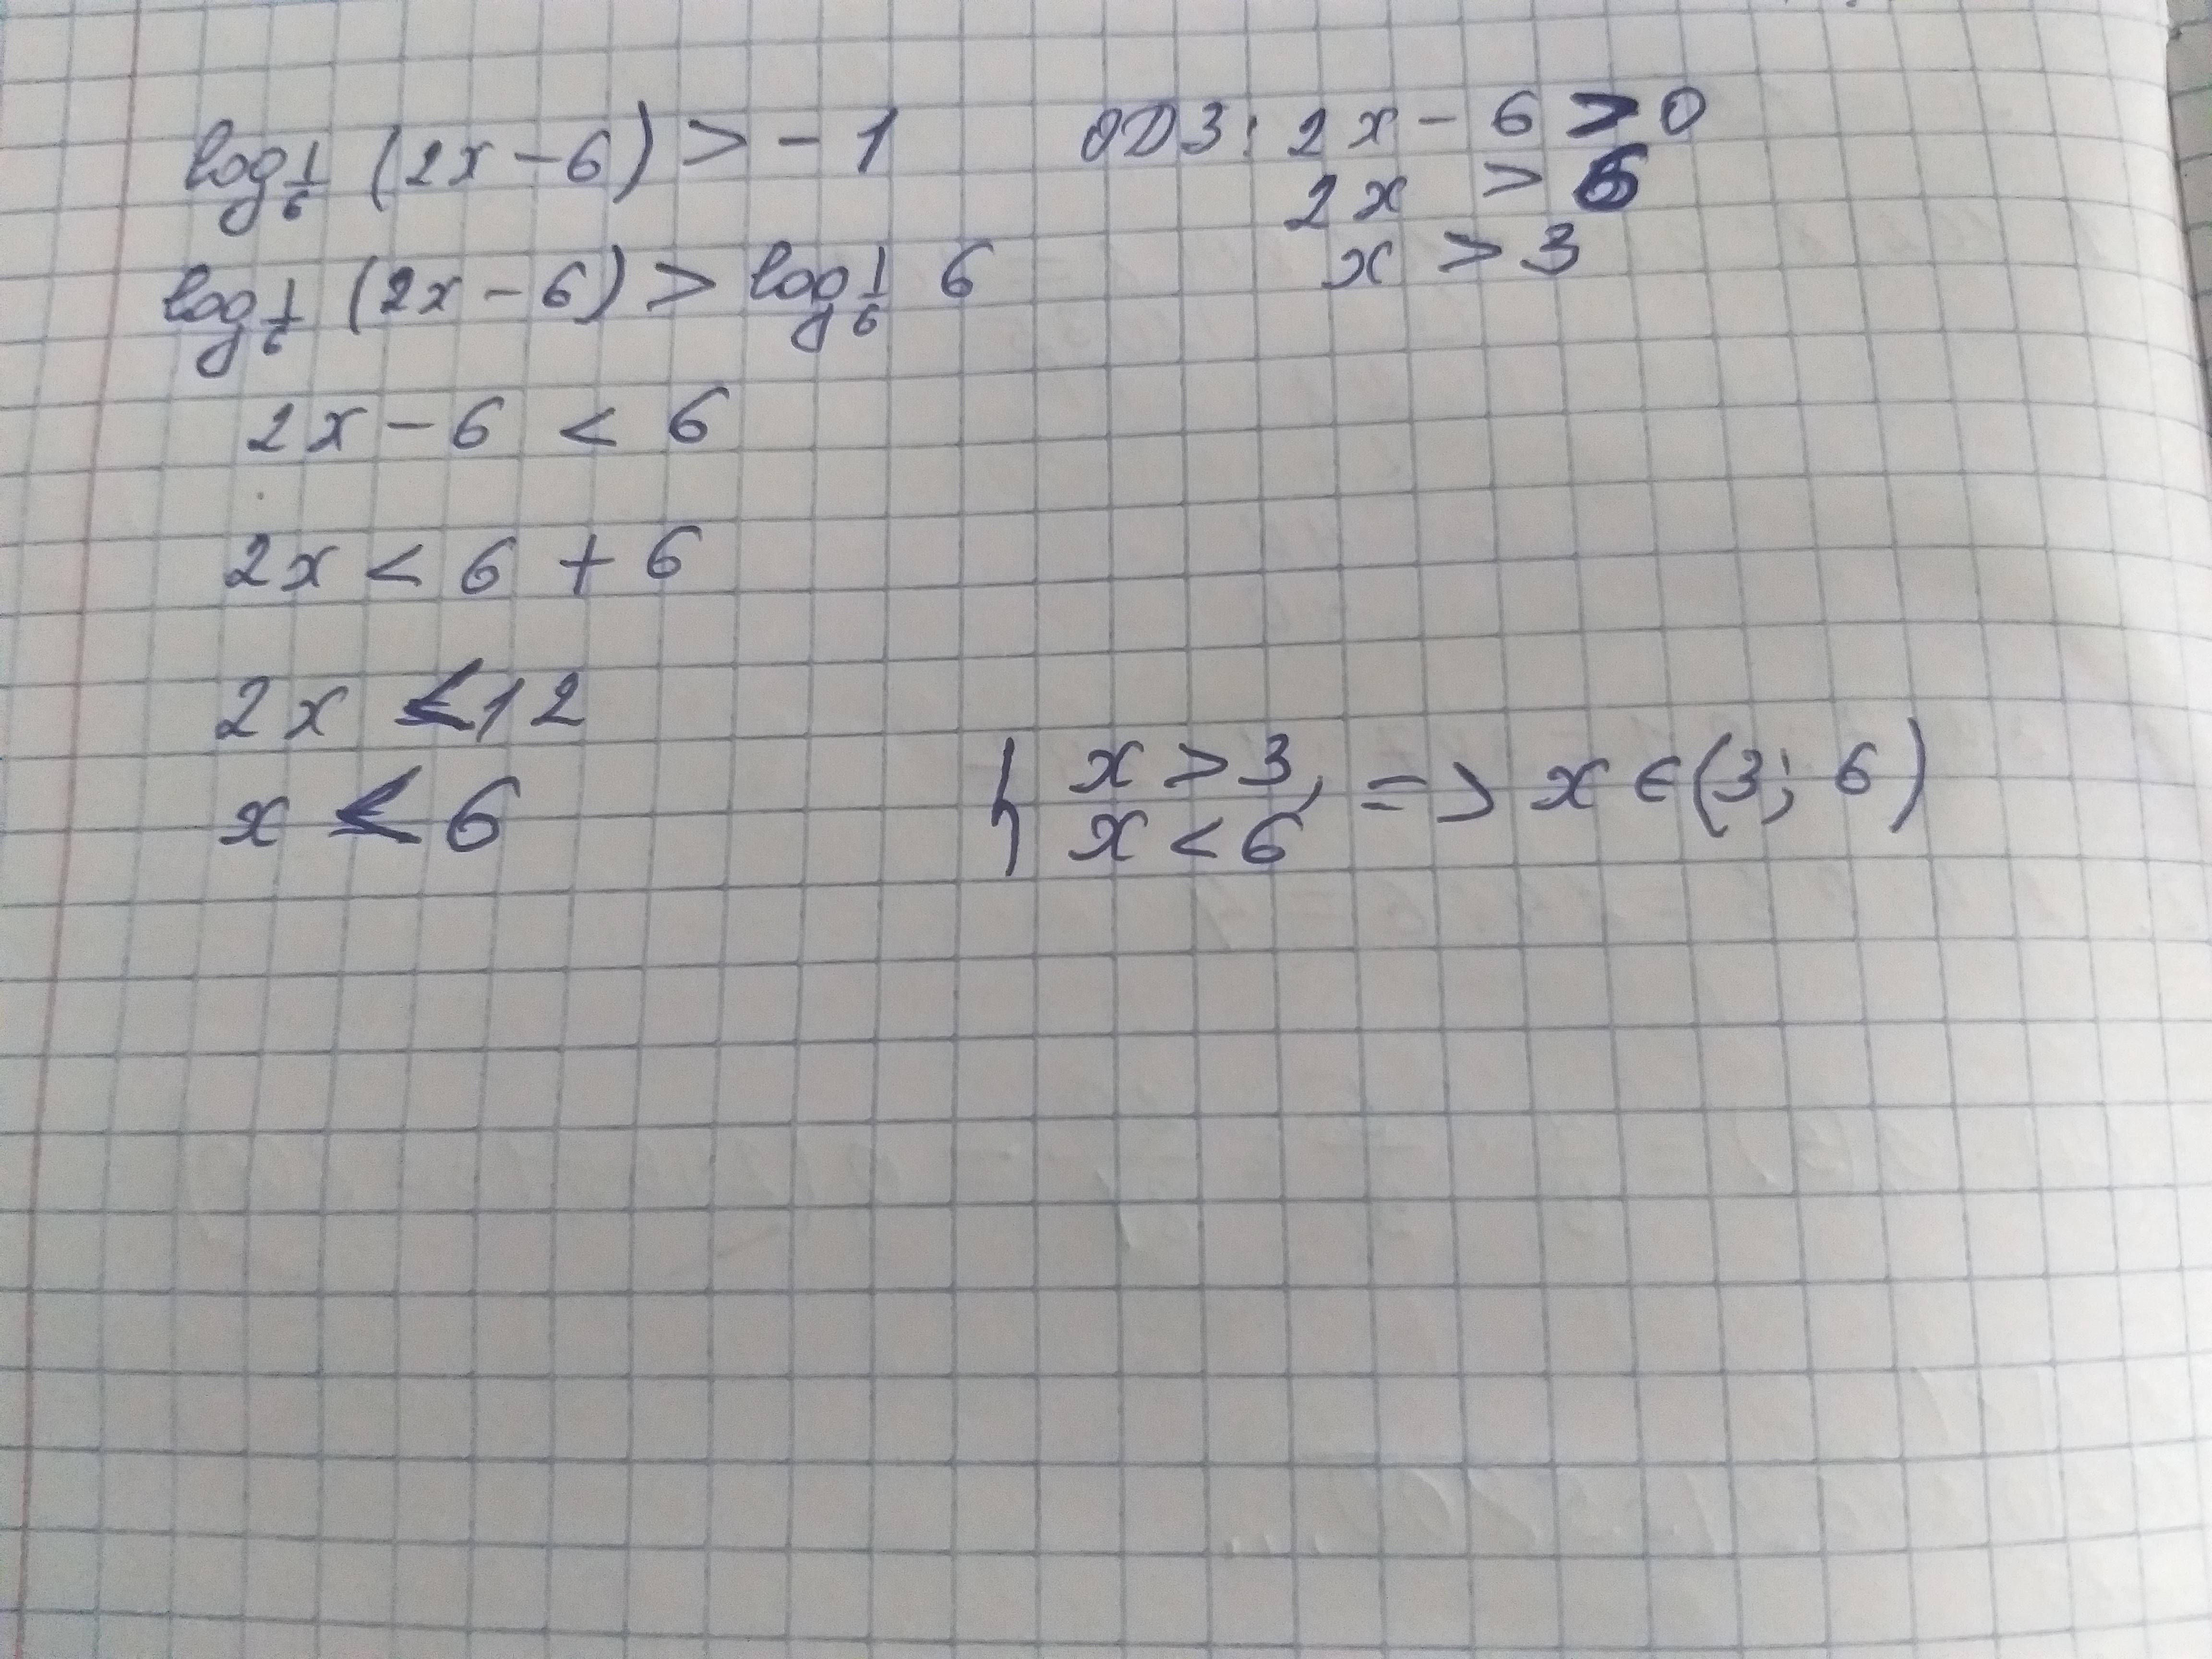 log 1/6 (2x - 6) > - 1
log 1/6 (2x - 6) > log 1/6 6
2x - 6 < 6
2x < 6 + 6
2x < 12
x < 6
ОДЗ: 2x - 6 > 0
2x > 6
x > 3
{ x > 3,
x < 6 => x ∈ (3; 6)